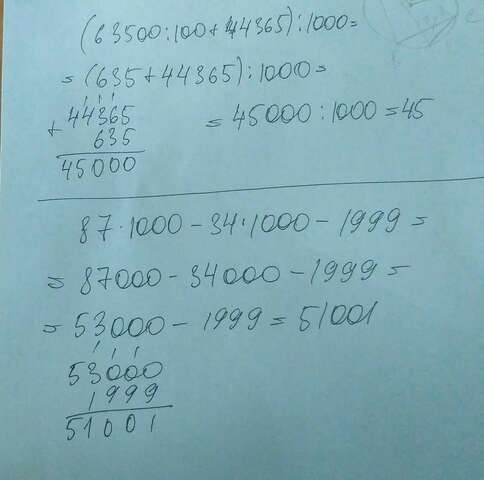 (63500:100+44365):1000=
=(635+44365):1000=
44365
+ 635
45000
=45000:1000=45
87·1000-34·1000-1999=
=87000-34000-1999=
=53000-1999=51001
53000
1999
51001